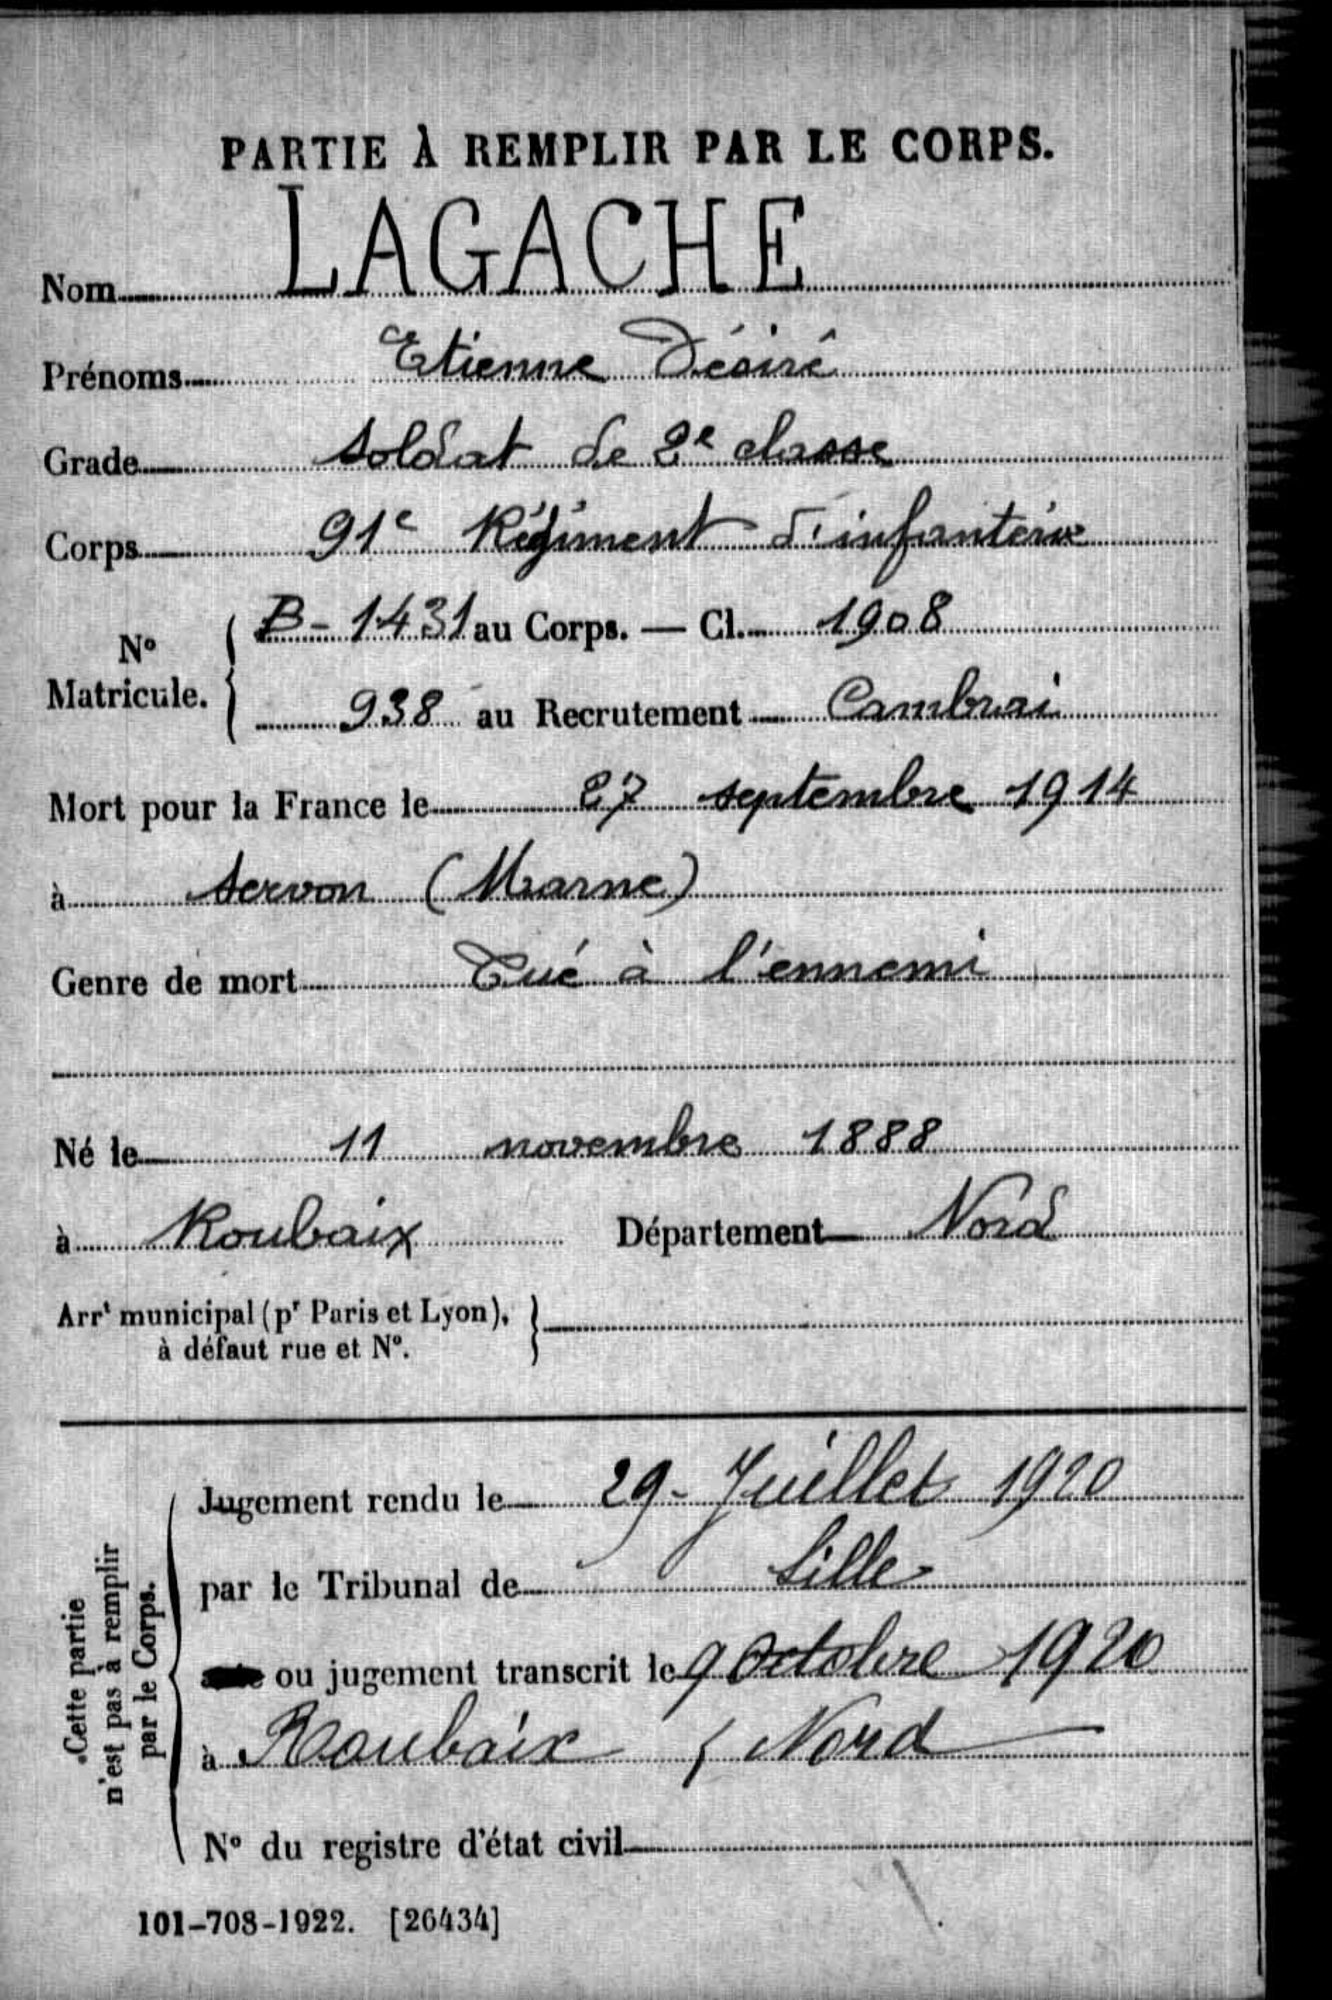 PARTIE À REMPLIR PAR LE CORPS.
Nom LAGACHE
Prénoms Etienne Désiré
Grade soldat de 2e classe
Corps 91e Régiment d'infanterie
N° Matricule. { B - 1431 au Corps. — Cl. 1908
938 au Recrutement Cambrai
Mort pour la France le 27 septembre 1914
à Servon (Marne)
Genre de mort Tué à l'ennemi
Né le 11 novembre 1888
à Roubaix Département Nord
Arrt municipal (pr Paris et Lyon), }
à défaut rue et N°.
Cette partie
n'est pas à remplir
par le Corps.
Jugement rendu le 29 - Juillet 1920
par le Tribunal de Lille
ou jugement transcrit le 9 Octobre 1920
à Roubaix ( Nord
N° du registre d'état civil
101-708-1922. [26434]